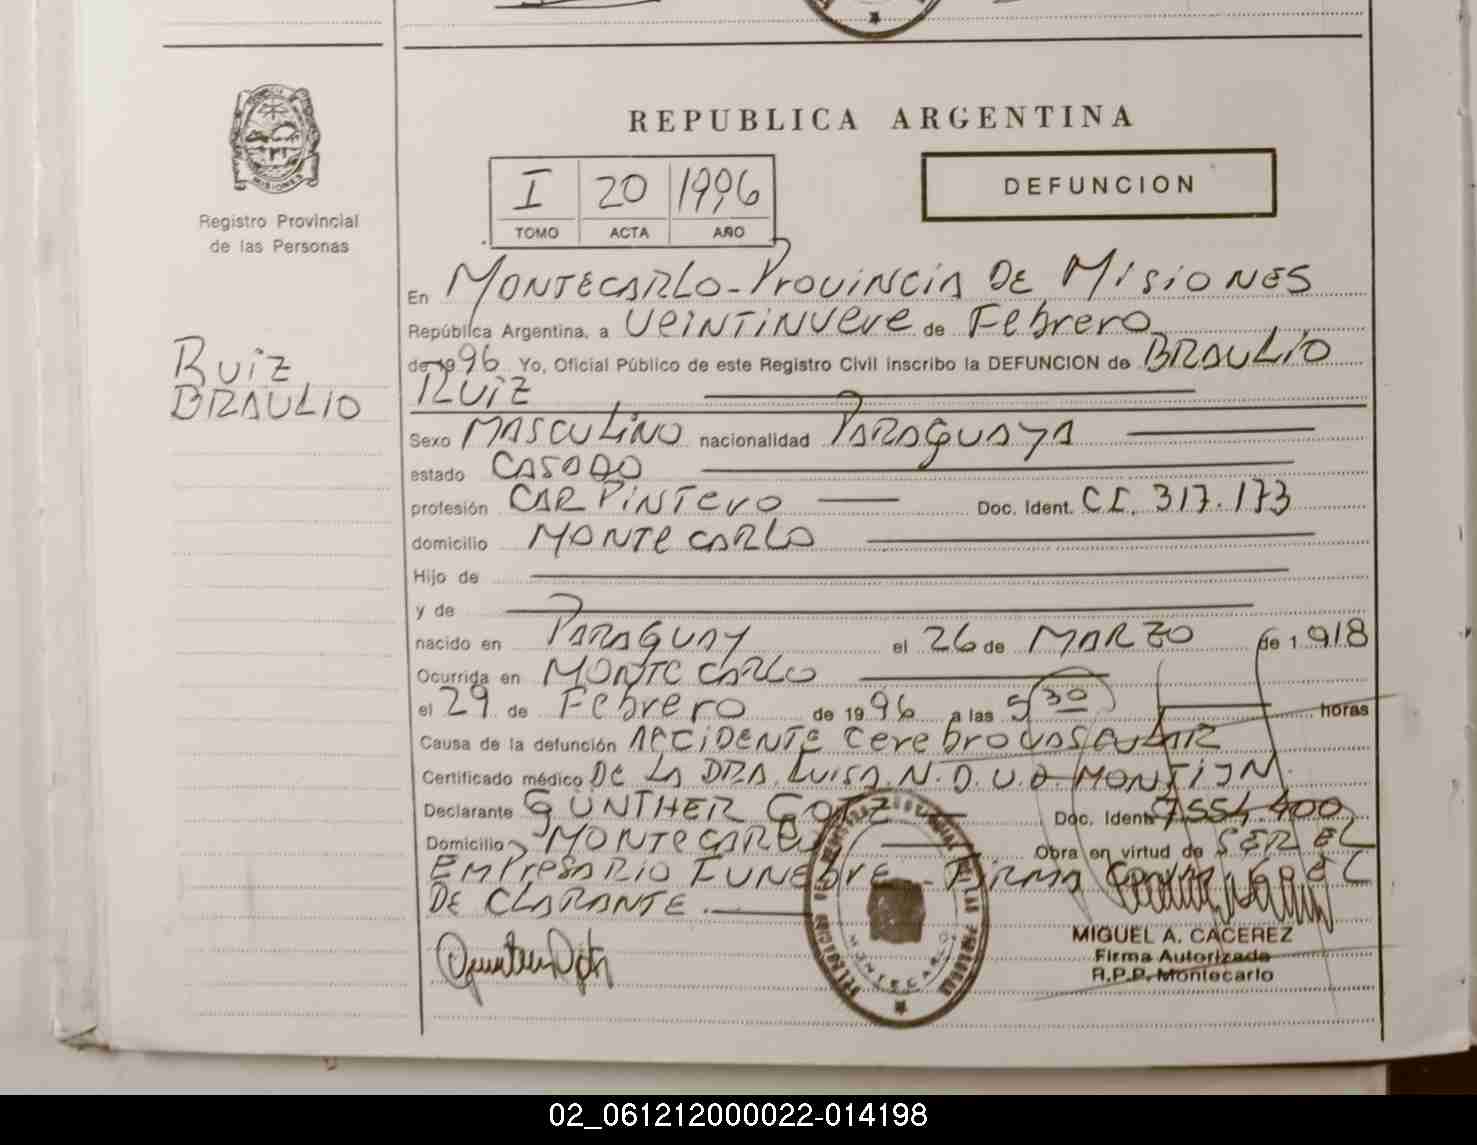 REPUBLICA ARGENTINA
I 20 1996
TOMO ACTA AÑO
DEFUNCION
Registro Provincial
de las Personas
Ruiz
BRAULIO
En MONTECARLO - Provincia DE MISIONES
República Argentina, a Veintinueve de Febrero
de 1996 Yo, Oficial Público de este Registro Civil inscribo la DEFUNCION de BRAULIO
RUIZ
Sexo MASCULINO nacionalidad PARAGUAYA
estado CASADO
profesión CARPINTERO Doc. Ident. C.I. 317.173
domicilio MONTECARLO
Hijo de
y de
nacido en PARAGUAY el 26 de MARZO de 1918
Ocurrida en MONTECARLO
el 29 de Febrero de 1996 a las 5 30 horas
Causa de la defunción ACCIDENTE cerebrovascular
Certificado médico DE LA DRA. LUISA N.D.V.D. MONTIJN.
Declarante GUNTHER GOTZ Doc. Ident. 7554.400
Domicilio MONTECARLO Obra en virtud de SER EL
EMPRESARIO FUNEBRE - FIRMA EL
DECLARANTE.
MONTECARLO
MIGUEL A. CACEREZ
Firma Autorizada
R.P.P. Montecarlo
02_061212000022-014198